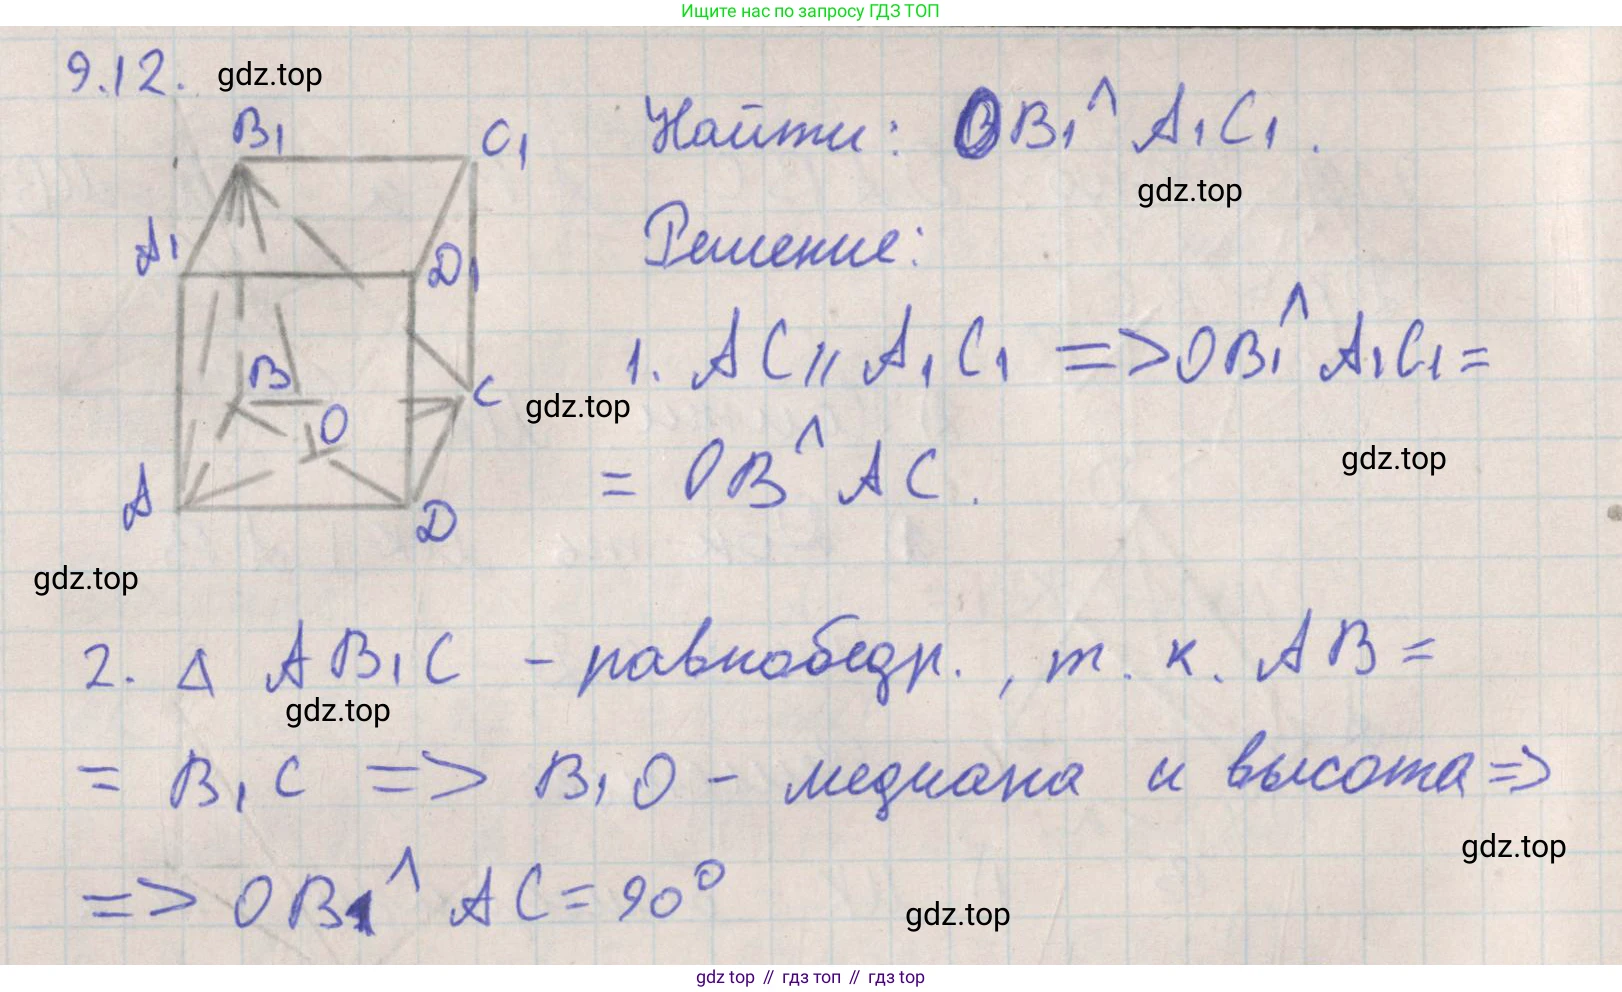 Ищите нас по запросу ГДЗ ТОП
9.12. gdz.top
B₁ C₁
A₁ D₁
B C
O
A D
Найти: OB₁^A₁C₁.
gdz.top
Решение:
1. AC || A₁C₁ => OB₁^A₁C₁ =
gdz.top
= OB^AC.
gdz.top
gdz.top
2. △ AB₁C – равнобедр., т.к. AB =
gdz.top
= B₁C => B₁O – медиана и высота =>
gdz.top
=> OB₁^AC = 90°
gdz.top
gdz top // гдз топ // гдз top